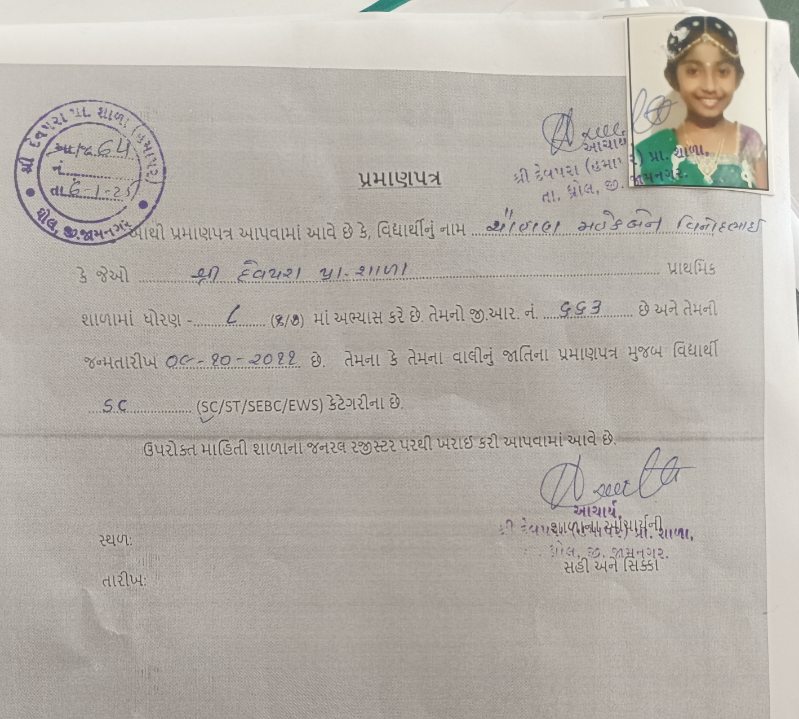 શ્રી દેવપરા પ્રા. શાળા (હમાપર)
આ.જા.64
નં.
તા.6-1-25
ધ્રોલ, જી.જામનગર
આચાર્ય
શ્રી દેવપરા (હમાપર) પ્રા. શાળા,
તા. ધ્રોલ, જી. જામનગર.
પ્રમાણપત્ર
આથી પ્રમાણપત્ર આપવામાં આવે છે કે, વિદ્યાર્થીનું નામ ચૌહાણ વિનોદભાઈ
કે જેઓ શ્રી દેવપરા પ્રા.શાળા પ્રાથમિક
શાળામાં ધોરણ - ૮ માં અભ્યાસ કરે છે. તેમનો જી.આર. નં. ૬૬૩ છે અને તેમની
જન્મતારીખ ૦૯-૧૦-૨૦૧૧ છે. તેમના કે તેમના વાલીનું જાતિના પ્રમાણપત્ર મુજબ વિદ્યાર્થી
SC (SC/ST/SEBC/EWS) કેટેગરીના છે.
ઉપરોક્ત માહિતી શાળાના જનરલ રજીસ્ટર પરથી ખરાઈ કરી આપવામાં આવે છે.
આચાર્ય,
શાળાના આચાર્યની
શ્રી દેવપરા (હમાપર) પ્રા. શાળા,
ધ્રોલ, જી. જામનગર.
સહી અને સિક્કા
સ્થળ:
તારીખ: